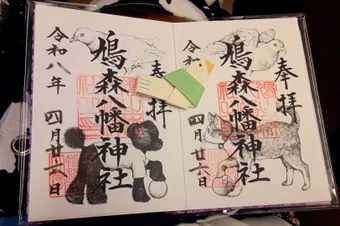 奉拝
鳩森八幡神社
令和八年
四月廿六日
奉拝
鳩森八幡神社
令和八年
四月廿六日